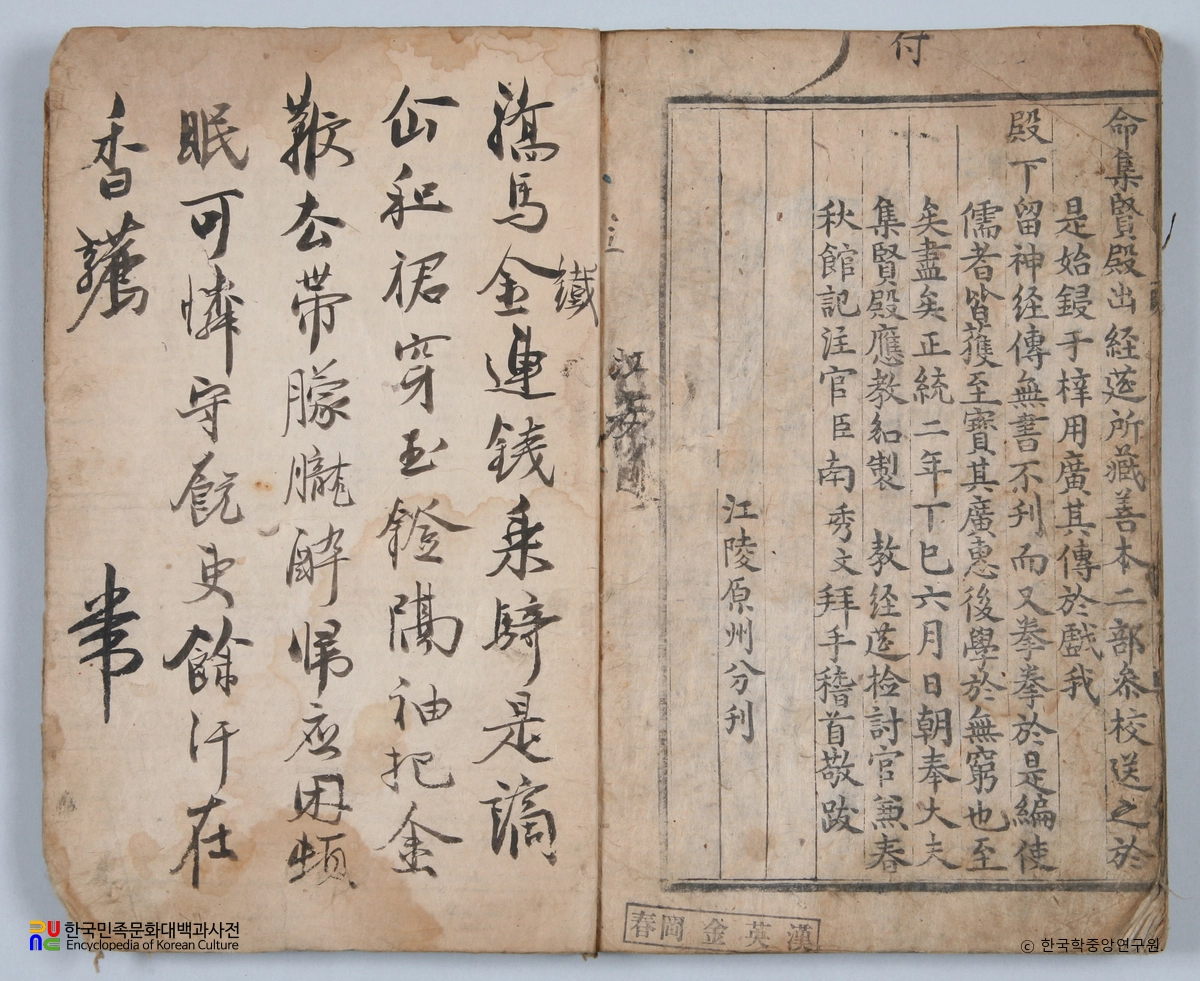 付
命集賢殿出経莚所藏善本二部叅校送之於
是始鋟于梓用廣其傳於戲我
殿下留神経傳無書不刋而又拳拳於是編使
儒者皆獲至寳其廣惠後學於無窮也至
矣盡矣正統二年丁巳六月日朝奉大夫
集賢殿應教知製 教経莚検討官兼春
秋館記注官臣南秀文拜手稽首敬跋
江陵原州分刋
春岡 金英漢
江陵
驕馬金連錢乗騎是謫
鐵
仚和裙穿玉鐙隔袖把金
鞭去帶朦朧酔歸應困頓
眠可憐守 吏餘汗在
香韉
한국민족문화대백과사전
Encyclopedia of Korean Culture
© 한국학중앙연구원